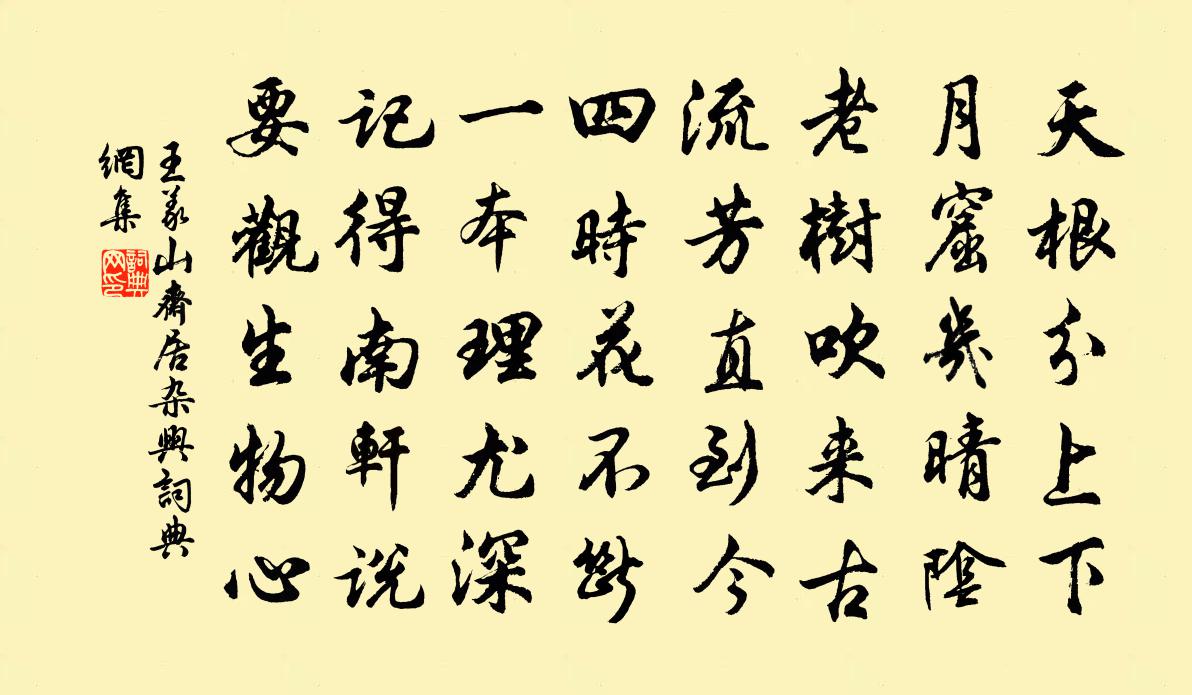 天根分上下
月窟幾晴陰
老樹吹来古
流芳直到今
四時花不斷
一本理尤深
記得南軒説
要觀生物心
王義山齋居杂興詞典
網集
詞典
网印